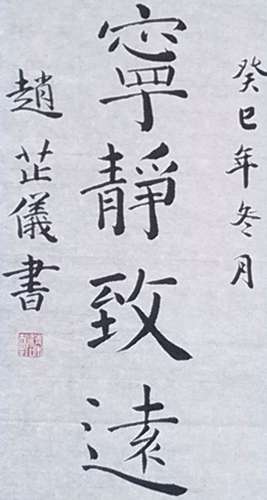 癸巳年冬月
寧靜致遠
趙芷儀書